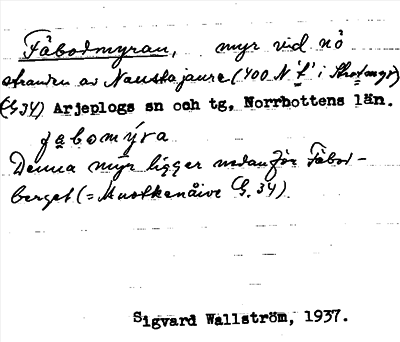 Fäbodmyran, myr vid nö
stranden av Nautajaure (400 N "t" i Strotmyr)
(G 34) Arjeplogs sn och tg. Norrbottens län.
fabomýra
Denna myr ligger nedanför Fäbod-
berget (= Muotkenåive G. 34).
Sigvard Wallström, 1937.